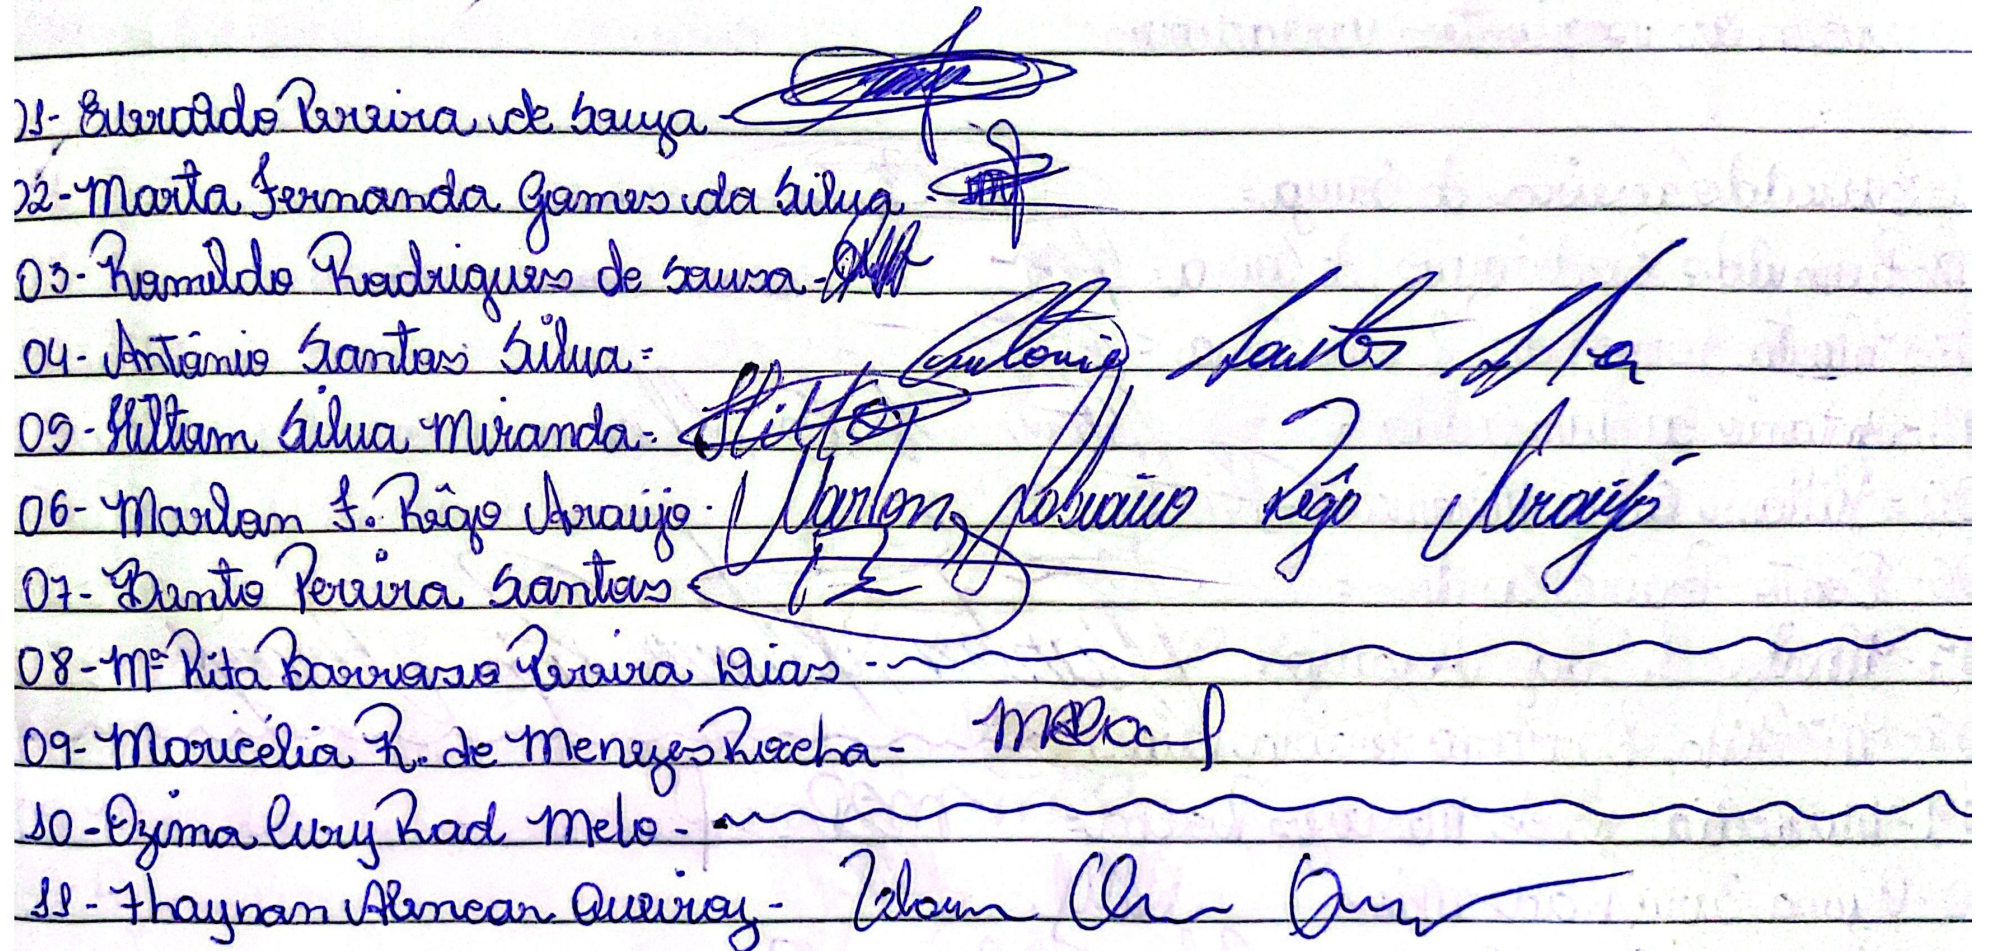 01- Everaldo Pereira de Souza -
02- Marta Fernanda Gomes da Silva -
03- Romildo Rodrigues de Sousa -
04- Antônio Santos Silva - Antonio Santos Silva
05- Hiltiam Silva Miranda -
06- Marlon F. Rêgo Araújo - Marlon Rêgo Araújo
07- Bento Pereira Santos -
08- Mª Rita Barroso Pereira Dias -
09- Maricélia R. de Menezes Rocha -
10- Ozima Cury Rad Melo -
11- Thaynan Alencar Queiroz -